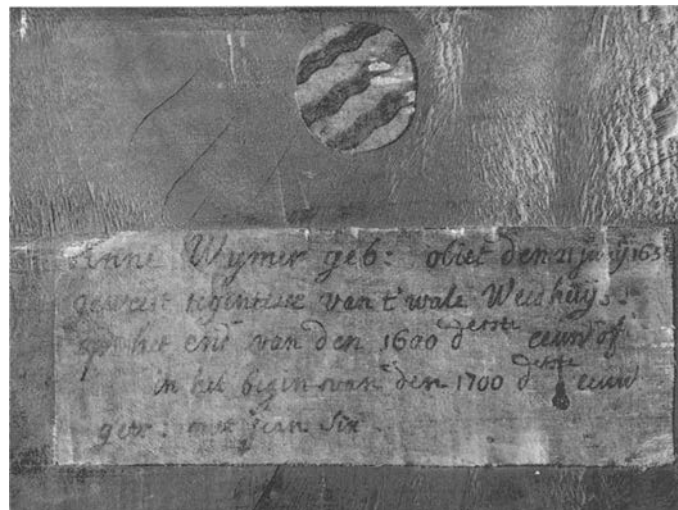 Anne Wymer geb: obiet den 21 junij 165
geweest regentesse van t' wale Weeshuijs
op het end van den 1600 derste eeuw of
in het begin van den 1700 derste eeuw
getr: met jean Six